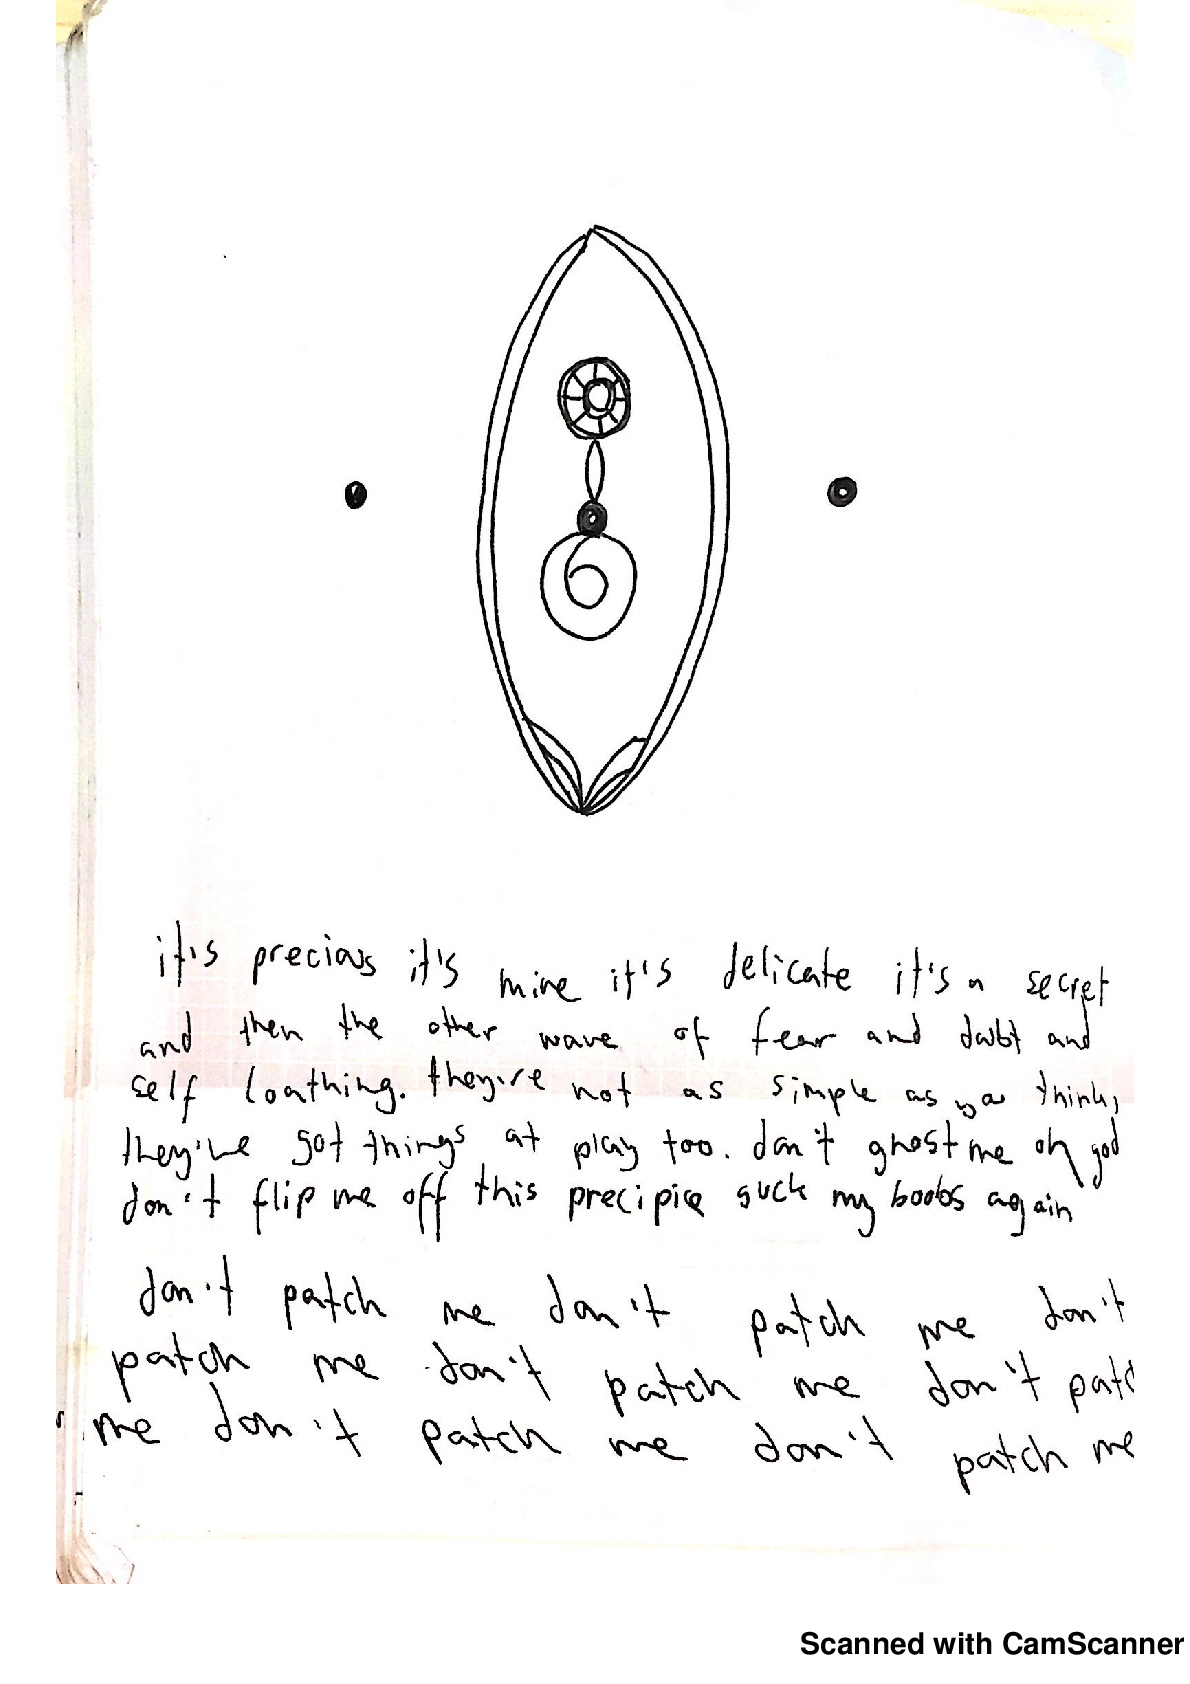 it's precious it's mine it's delicate it's a secret
and then the other wave of fear and doubt and
self loathing. they're not as simple as you think,
they've got things at play too. don't ghost me oh god
don't flip me off this precipice suck my boobs again
don't patch me don't patch me don't
patch me don't patch me don't patc
me don't patch me don't patch me
Scanned with CamScanner